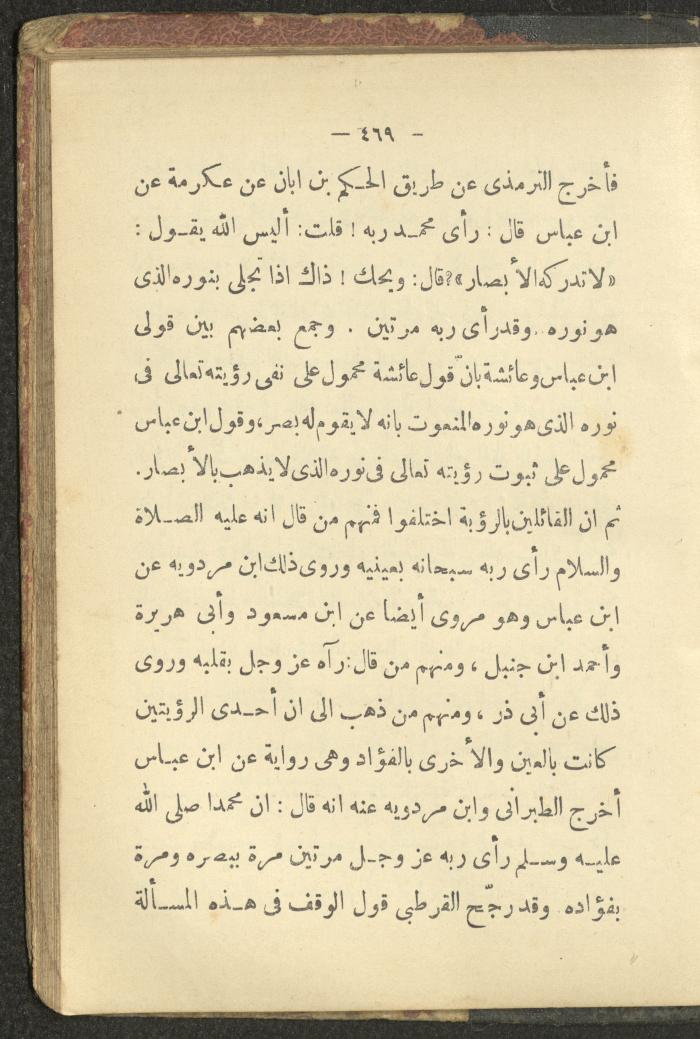 - ٤٦٩ —
فأخرج الترمذى عن طريق الحـكم بن ابان عن عـكرمة عن
ابن عباس قال : رأى محمـد ربه ! قلت: أليس الله يقـول :
«لا تدركه الأ بصار»؟قال: ويحك ! ذاك اذا تجلى بنوره الذى
هو نوره . وقد رأى ربه مرتين . وجمع بعضهم بين قولى
ابن عباس وعائشة بانّ قول عائشة محمول على نفى رؤيته تعالى فى
نوره الذى هو نوره المنعوت بانه لا يقوم له بصر، وقول ابن عباس
محمول على ثبوت رؤيته تعالى فى نوره الذى لا يذهب بالأ بصار.
ثم ان القائلين بالرؤية اختلفوا فمنهم من قال انه عليه الصـلاة
والسلام رأى ربه سبحانه بعينيه وروى ذلك ابن مردويه عن
ابن عباس وهو مروى أيضا عن ابن مسعود وأبى هريرة
وأحمد ابن جنبل ، ومنهم من قال: رآه عز وجل بقلبه وروى
ذلك عن أبى ذر ، ومنهم من ذهب الى ان أحـدى الرؤيتين
كانت بالعين والأخرى بالفؤاد وهى رواية عن ابن عبـاس
أخرج الطبرانى وابن مردويه عنه انه قال : ان محمدا صلى الله
عليـه وسـلم رأى ربه عز وجـل مرتين مرة ببصره ومرة
بفؤاده . وقد رجّح القرطبى قول الوقف فى هـذه المسـألة